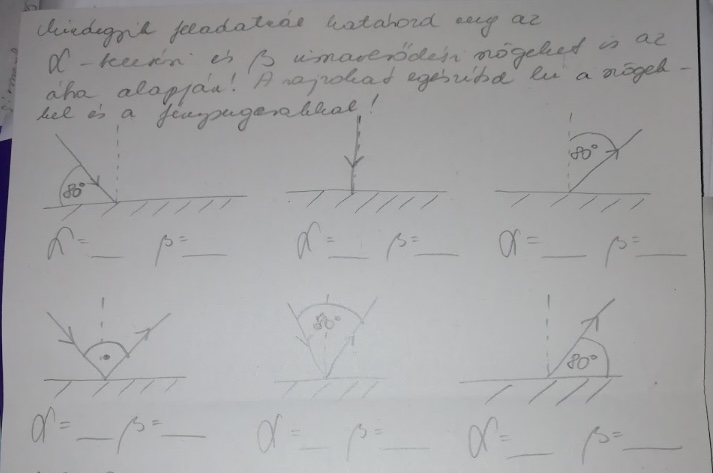 Mindegyik feladatnál határozd meg az
α - beesési és β visszaverődési szögeket is az
ábra alapján! A rajzokat egészítsd ki a szögek-
kel és a fénysugarakkal!
80° 80°
α = __ β = __ α = __ β = __ α = __ β = __
80° 80°
α = __ β = __ α = __ β = __ α = __ β = __